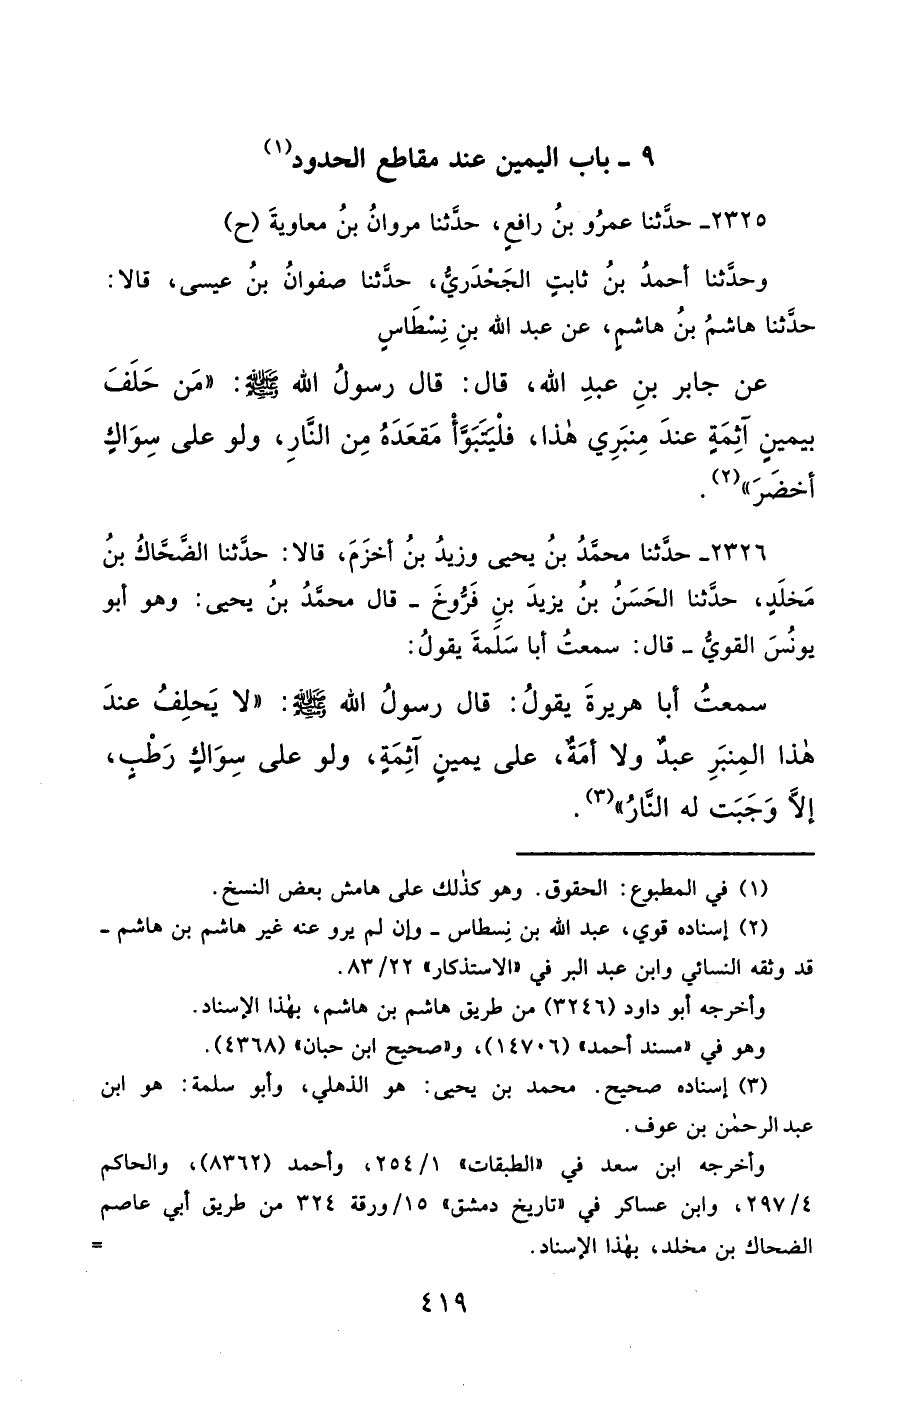 ٩ ـ باب اليمين عند مقاطع الحدود(١)
٢٣٢٥ـ حدَّثنا عمرُو بنُ رافعٍ، حدَّثنا مروانُ بنُ معاويةَ (ح)
وحدَّثنا أحمدُ بنُ ثابتٍ الجَحْدَريُّ، حدَّثنا صفوانُ بنُ عيسى، قالا:
حدَّثنا هاشمُ بنُ هاشمٍ، عن عبد الله بنِ نِسْطَاسٍ
عن جابر بنِ عبدِ الله، قال: قال رسولُ الله ﷺ: «مَن حَلَفَ
بيمينٍ آثِمَةٍ عندَ مِنبَرِي هٰذا، فلْيَتَبَوَّأْ مَقعَدَهُ مِن النَّارِ، ولو على سِوَاكٍ
أخضَرَ»(٢).
٢٣٢٦ـ حدَّثنا محمَّدُ بنُ يحيى وزيدُ بنُ أخزَمَ، قالا: حدَّثنا الضَّحَّاكُ بنُ
مَخلَدٍ، حدَّثنا الحَسَنُ بنُ يزيدَ بنِ فَرُّوخَ ـ قال محمَّدُ بنُ يحيى: وهو أبو
يونُسَ القويُّ ـ قال: سمعتُ أبا سَلَمةَ يقولُ:
سمعتُ أبا هريرةَ يقولُ: قال رسولُ الله ﷺ: «لا يَحلِفُ عندَ
هٰذا المِنبَرِ عبدٌ ولا أمَةٌ، على يمينٍ آثِمَةٍ، ولو على سِوَاكٍ رَطْبٍ،
إلاَّ وَجَبَت له النَّارُ»(٣).
(١) في المطبوع: الحقوق. وهو كذٰلك على هامش بعض النسخ.
(٢) إسناده قوي، عبد الله بن نِسطاس ـ وإن لم يرو عنه غير هاشم بن هاشم ـ
قد وثقه النسائي وابن عبد البر في «الاستذكار» ٨٣/٢٢.
وأخرجه أبو داود (٣٢٤٦) من طريق هاشم بن هاشم، بهٰذا الإسناد.
وهو في «مسند أحمد» (١٤٧٠٦)، و«صحيح ابن حبان» (٤٣٦٨).
(٣) إسناده صحيح. محمد بن يحيى: هو الذهلي، وأبو سلمة: هو ابن
عبد الرحمٰن بن عوف.
وأخرجه ابن سعد في «الطبقات» ٢٥٤/١، وأحمد (٨٣٦٢)، والحاكم
٢٩٧/٤، وابن عساكر في «تاريخ دمشق» ١٥/ورقة ٣٢٤ من طريق أبي عاصم
الضحاك بن مخلد، بهٰذا الإسناد. =
٤١٩